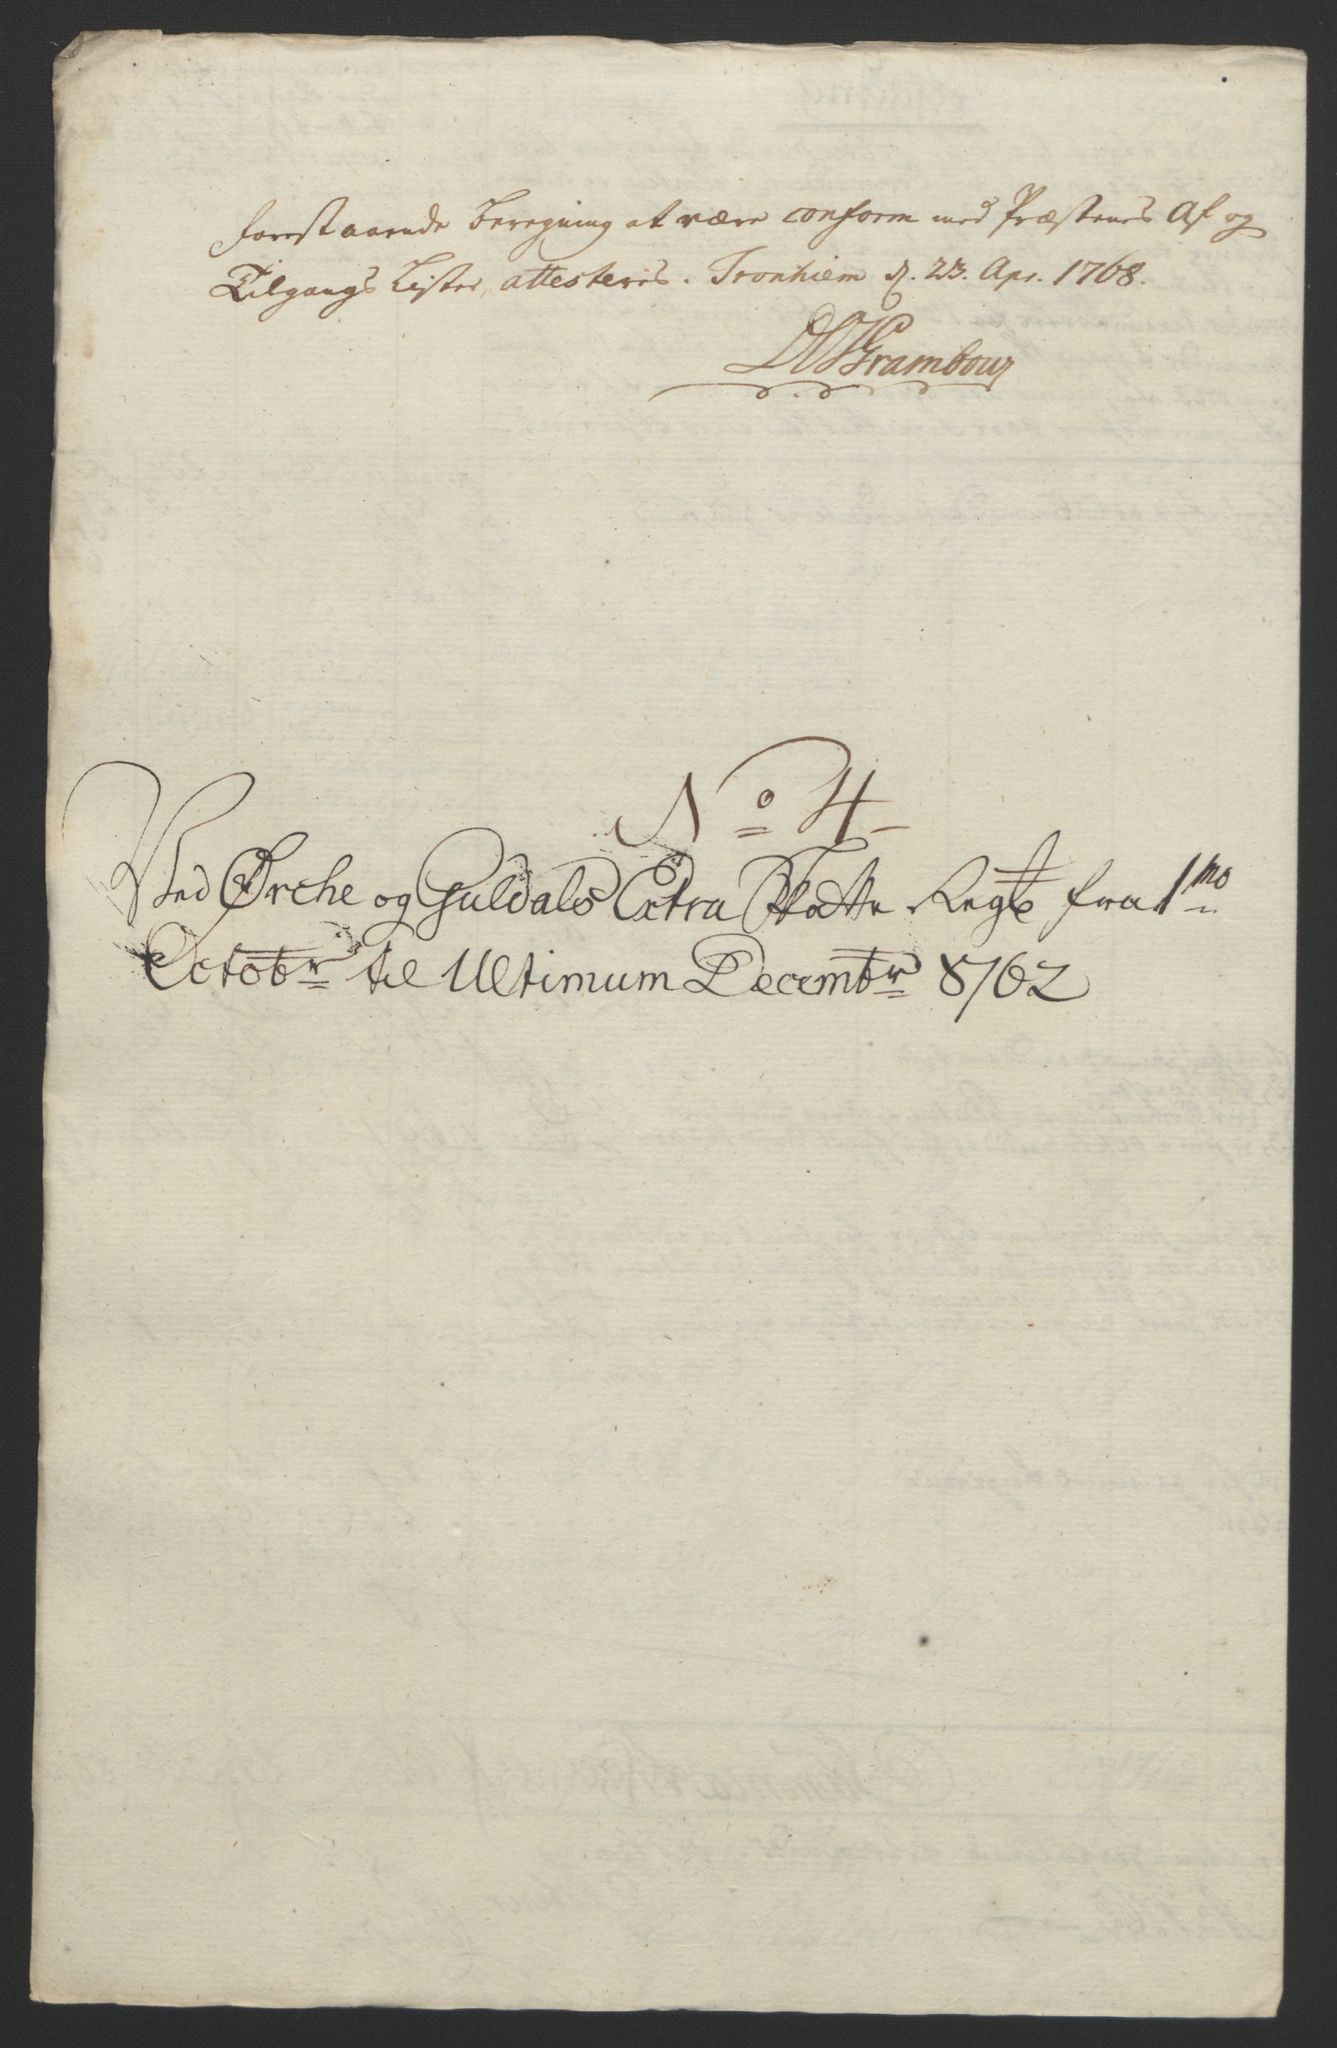 forestaaende beregning at være conform med Præstenes Af og
Tilgangs Lister, attesteres. Tronhiem d. 23. Apr. 1768.
Grambour
No 4
Ved Ørche og Guldals Extra Skatte Regb fra 1mo
Octobr til Ultimum Decembr 1762